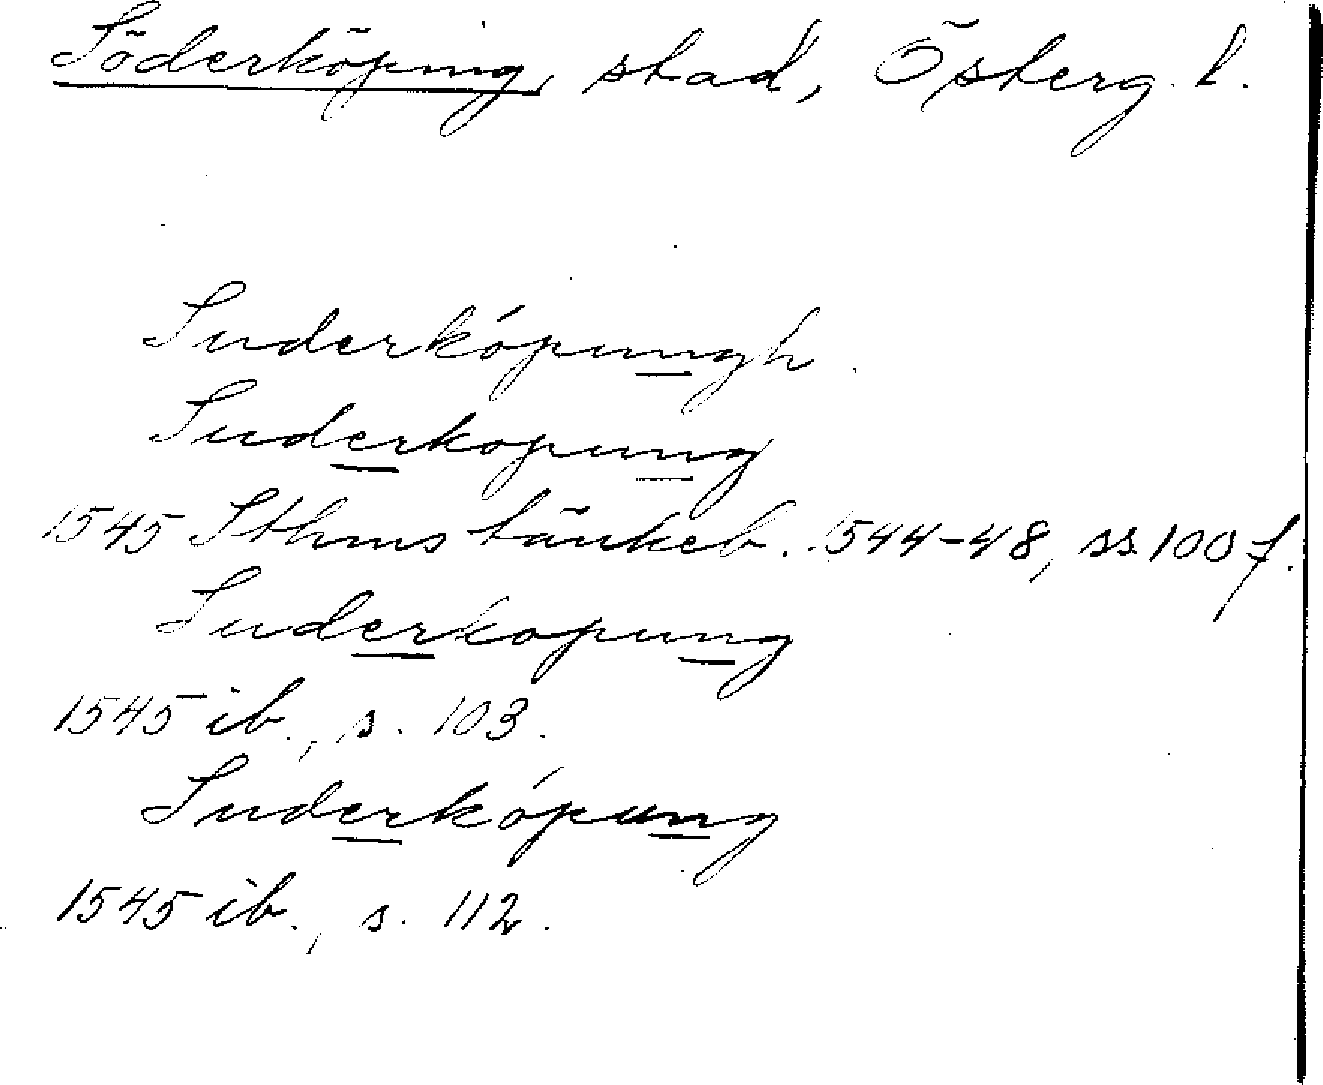 Söderköping, stad, Österg. l.
Suderkópungh.
Suderkopung
1545 Sthms tänkeb. 1544-48, ss. 100 f.
Suderkopung
1545 ib., s. 103.
Suderkópung
1545 ib., s. 112.